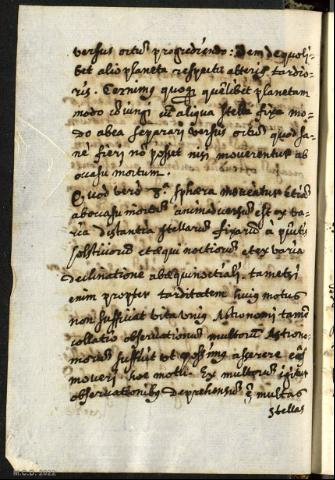 versus ortũ progrediendo: Idem de quoli-
bet alio planeta respectu alterius tardio-
ris. Cernimus quoq; quẽlibet planetam
modo cõiungi cũ aliqua stella fixa mo-
do ab ea separari versus ortũ quod sa-
nè fieri nõ posset nisi moverentur ab
occasu in ortum.
Quod verò 8ª sphæra moveatur etiã
ab occasu in ortũ animadversũ est ex va-
ria distantia stellarũ fixarũ à pũctis
solstitiorũ et æquinoctiorũ et ex varia
declinatione ab æquinoctiali, tametsi
enim propter tarditatem huius motus
non sufficiat vita unius Astronomi tamẽ
collatio observationũ multorũ Astrono-
morũ sufficit ut possimus asserere eã
moveri hoc motu. Ex multorũ igitur
observationibus deprehensũ ẽ multas
stellas
M.C.D. 2022